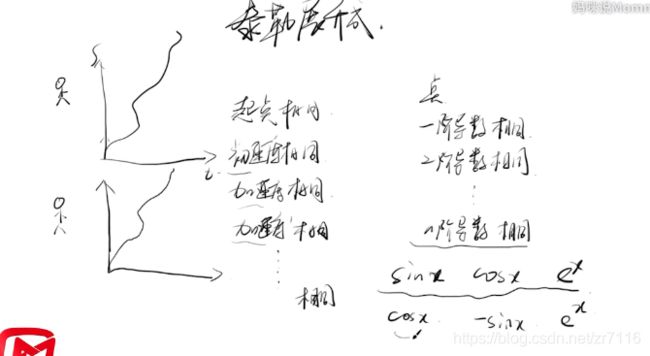 妈咪说Momr
泰勒展开式.
S
起点相同
初速度相同
t
加速度相同
加速度'相同
相同
点
一阶导数相同
2阶导数相同
n阶导数相同
sinx cosx e^x
cosx -sinx e^x
https://blog.csdn.net/zr7116